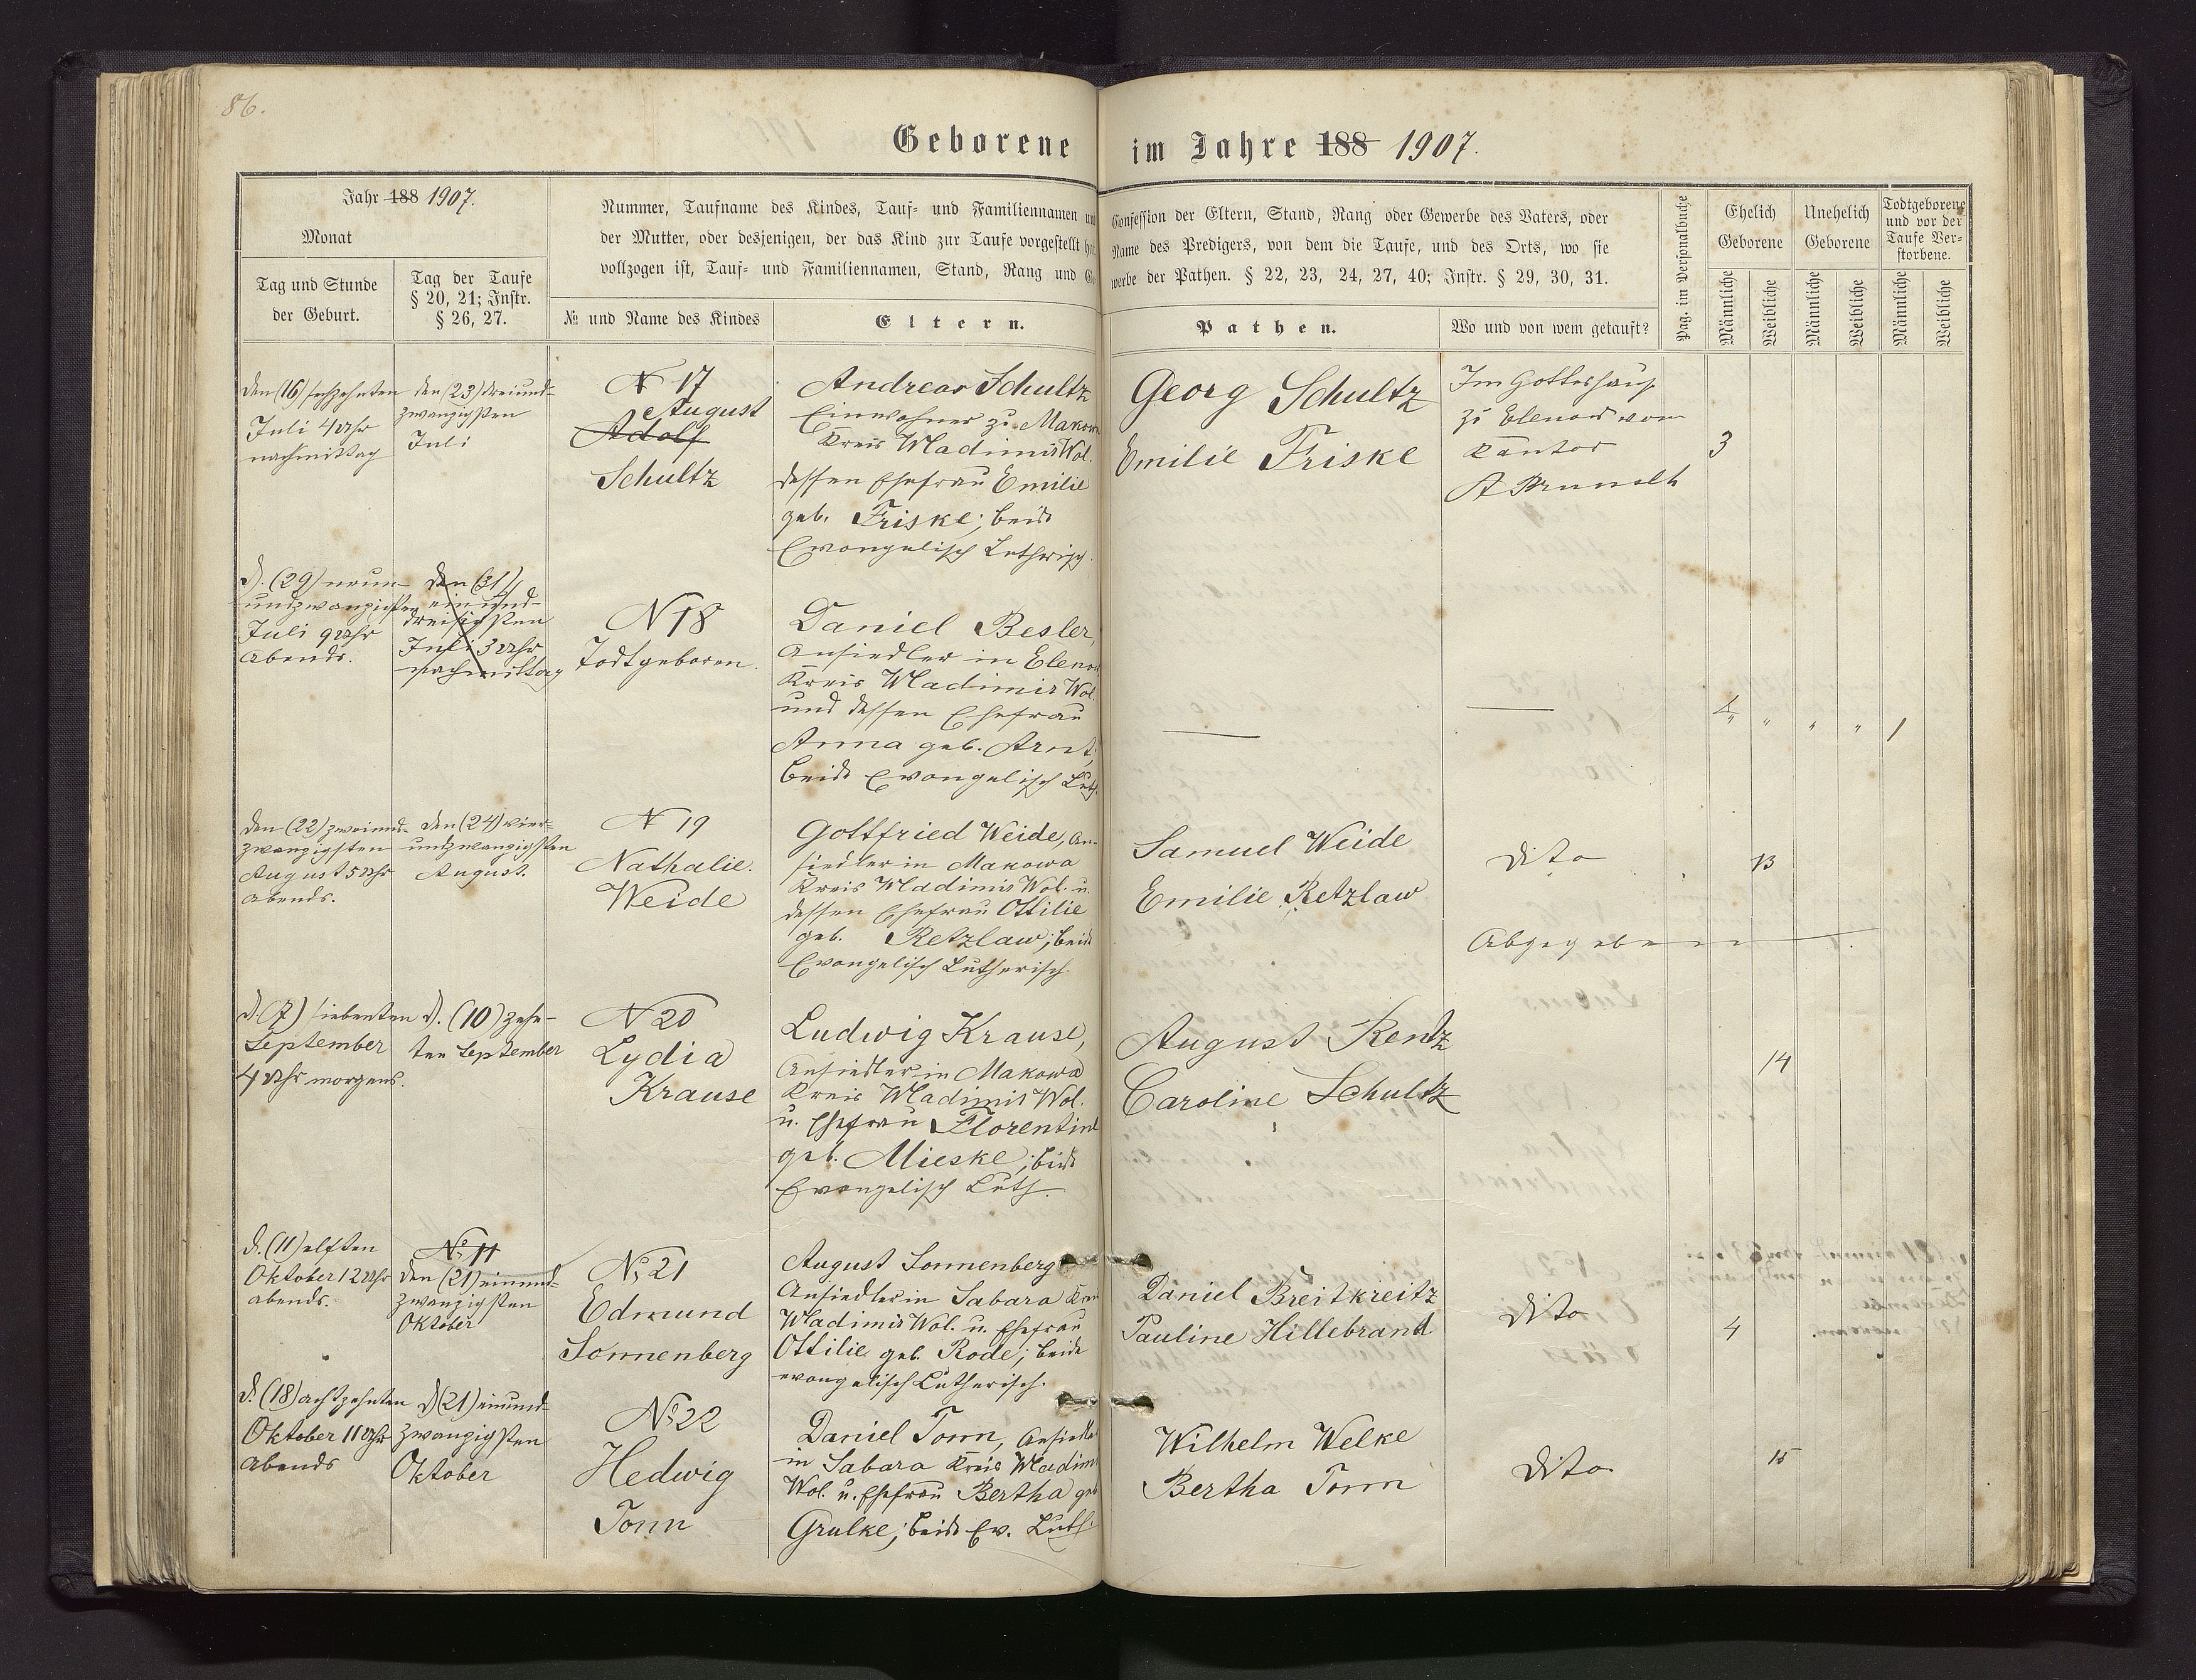 86.
Geborene im Jahre 188 1907.
Jahr 188 1907.
Monat
Tag und Stunde
der Geburt.
Tag der Taufe
§ 20, 21; Instr.
§ 26, 27.
Nummer, Taufname des Kindes, Tauf- und Familiennamen und
der Mutter, oder desjenigen, der das Kind zur Taufe vorgestellt hat
vollzogen ist, Tauf- und Familiennamen, Stand, Rang und Ge-
№ und Name des Kindes
Eltern.
Confession der Eltern, Stand, Rang oder Gewerbe des Vaters, oder
Name des Predigers, von dem die Taufe, und des Orts, wo sie
werbe der Pathen. § 22, 23, 24, 27, 40; Instr. § 29, 30, 31.
Pathen.
Wo und von wem getauft?
Pag. im Personalbuche
Ehelich
Geborene
Unehelich
Geborene
Todtgeborene
und vor der
Taufe Ver-
storbene.
Männliche
Weibliche
Männliche
Weibliche
Männliche
Weibliche
den (16) sechzehnten
Juli 4 Uhr
nachmittag
den (23) dreiund-
zwanzigsten
Juli
N 17
August
Adolf
Schultz
Andreas Schultz
Einwohner zu Makowa
Kreis Wladimir Wol.
dessen Ehefrau Emilie
geb. Friske; beide
Evangelisch Lutherisch.
Georg Schultz
Emilie Friske
Im Gotteshause
zu Elenow vom
Kantor
A Brunselt
3
d. (29) neun-
undzwanzigsten
Juli 9 Uhr
abends.
den (31)
einund-
dreisigsten
Juli 3 Uhr
nachmittag
N 18
Todtgeboren.
Daniel Besler,
Ansiedler in Elenow
Kreis Wladimir Wol.
und dessen Ehefrau
Anna geb. Arnt;
beide Evangelisch Luth.
—
—
" " " 1
den (22) zweiund-
zwanzigsten
August 5 Uhr
abends.
den (24) vier-
undzwanzigsten
August.
N 19
Nathalie.
Weide
Gottfried Weide, An-
siedler in Makowa
Kreis Wladimir Wol. u.
dessen Ehefrau Ottilie
geb. Retzlaw; beide
Evangelisch Lutherisch.
Samuel Weide
Emilie Retzlaw
dito
13
Abgegeben
d. (7) siebenten
September
4 Uhr morgens.
d. (10) zehn-
ten September
N 20
Lydia
Krause
Ludwig Krause,
Ansiedler in Makowa
Kreis Wladimir Wol.
u. Ehefrau Florentine
geb. Mieske; beide
Evangelisch Luth.
August Rentz
Caroline Schultz
14
d. (11) elften
Oktober 12 Uhr
abends.
No 11
den (21) einund-
zwanzigsten
Oktober
No 21
Edmund
Sonnenberg
August Sonnenberg
Ansiedler in Sabara Kreis
Wladimir Wol. u. Ehefrau
Ottilie geb. Rode; beide
evangelisch Lutherisch.
Daniel Breitkreitz
Pauline Hillebrand
dito
4
d. (18) achtzehnten
Oktober 11 Uhr
abends
d (21) einund-
zwanzigsten
Oktober
No 22
Hedwig
Tonn
Daniel Tonn, Ansiedler
in Sabara Kreis Wladimir
Wol. u. Ehefrau Bertha geb
Grulke; beide Ev. Luth.
Wilhelm Welke
Bertha Tonn
dito
15